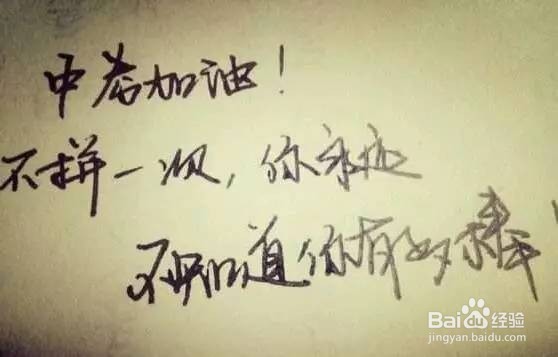 中考加油！
不拼一次，你永远
不知道你有多棒！
Baidu经验
jingyan.baidu.com